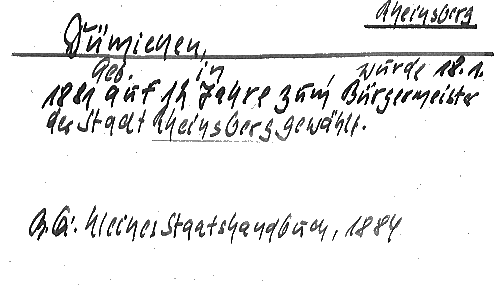 Rheinsberg
Dümichen,
geb. in wurde 18.1.
1881 auf 12 Jahre zum Bürgermeister
der Stadt Rheinsberg gewählt.
Kleines Staatshandbuch, 1884